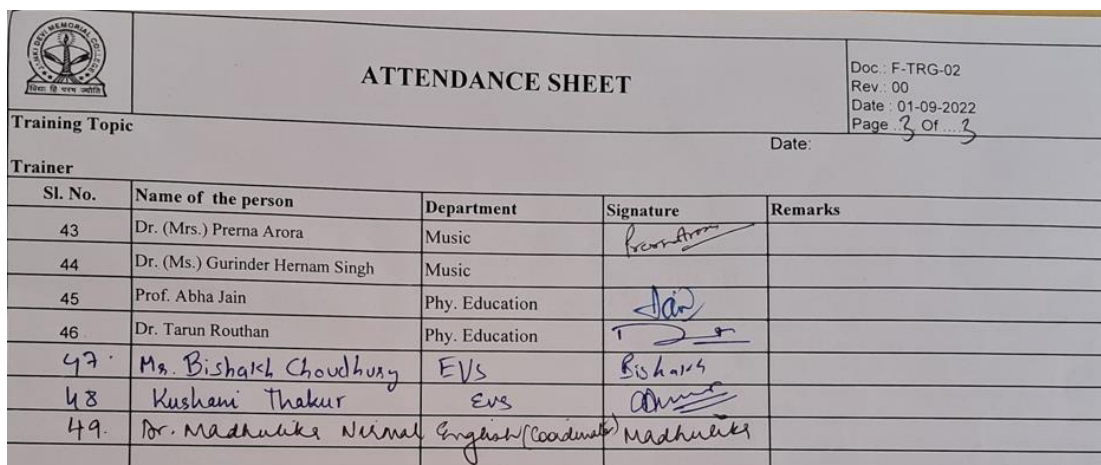 JANKI DEVI MEMORIAL COLLEGE
विद्या हि परम ज्योति
ATTENDANCE SHEET
Doc.: F-TRG-02
Rev.: 00
Date : 01-09-2022
Page ..3 Of ....3
Training Topic
Date:
Trainer
Sl. No. Name of the person Department Signature Remarks
43 Dr. (Mrs.) Prerna Arora Music
44 Dr. (Ms.) Gurinder Hernam Singh Music
45 Prof. Abha Jain Phy. Education Jain
46 Dr. Tarun Routhan Phy. Education
47. Mr. Bishakh Choudhury EVS Bishakh
48 Kushani Thakur EVS
49. Dr. Madhulika Nirmal English (Coordinator) Madhulika